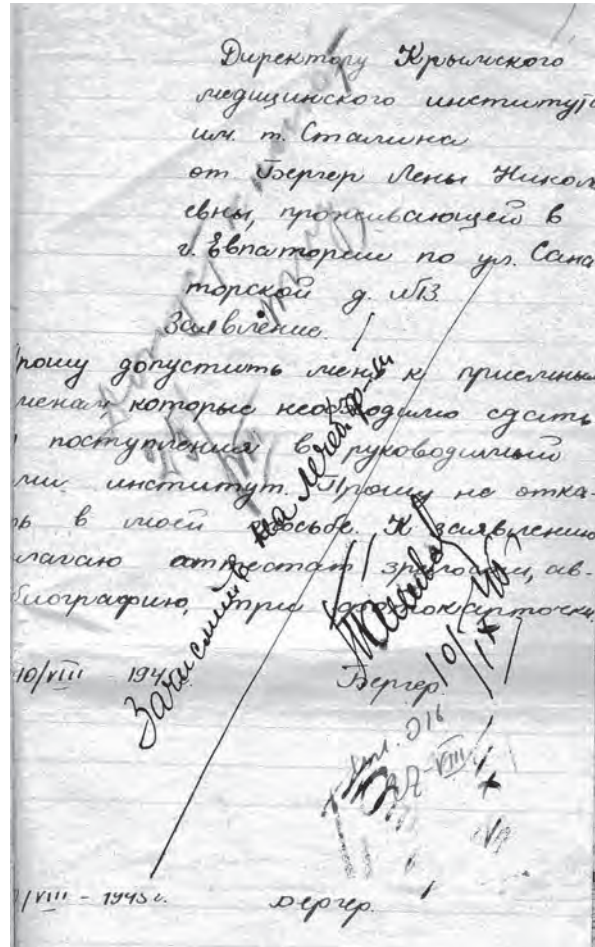 Директору Крымского
медицинского институт
им. т. Сталина
от Бергер Лены Никол
евны, проживающей в
г. Евпатории по ул. Сана
торской д. №13.
Заявление.
рошу допустить меня к приемным
менам которые необходимо сдать
поступления в руководимый
ми институт. Прошу не отка-
ть в моей просьбе. К заявлению
лагаю аттестат зрелости, ав-
биографию, три фотокарточки.
10/VIII 194 Бергер.
Зачислить на лечеб. ф-т
10/IX 45
27-VIII
/VIII - 1945 г. Бергер.